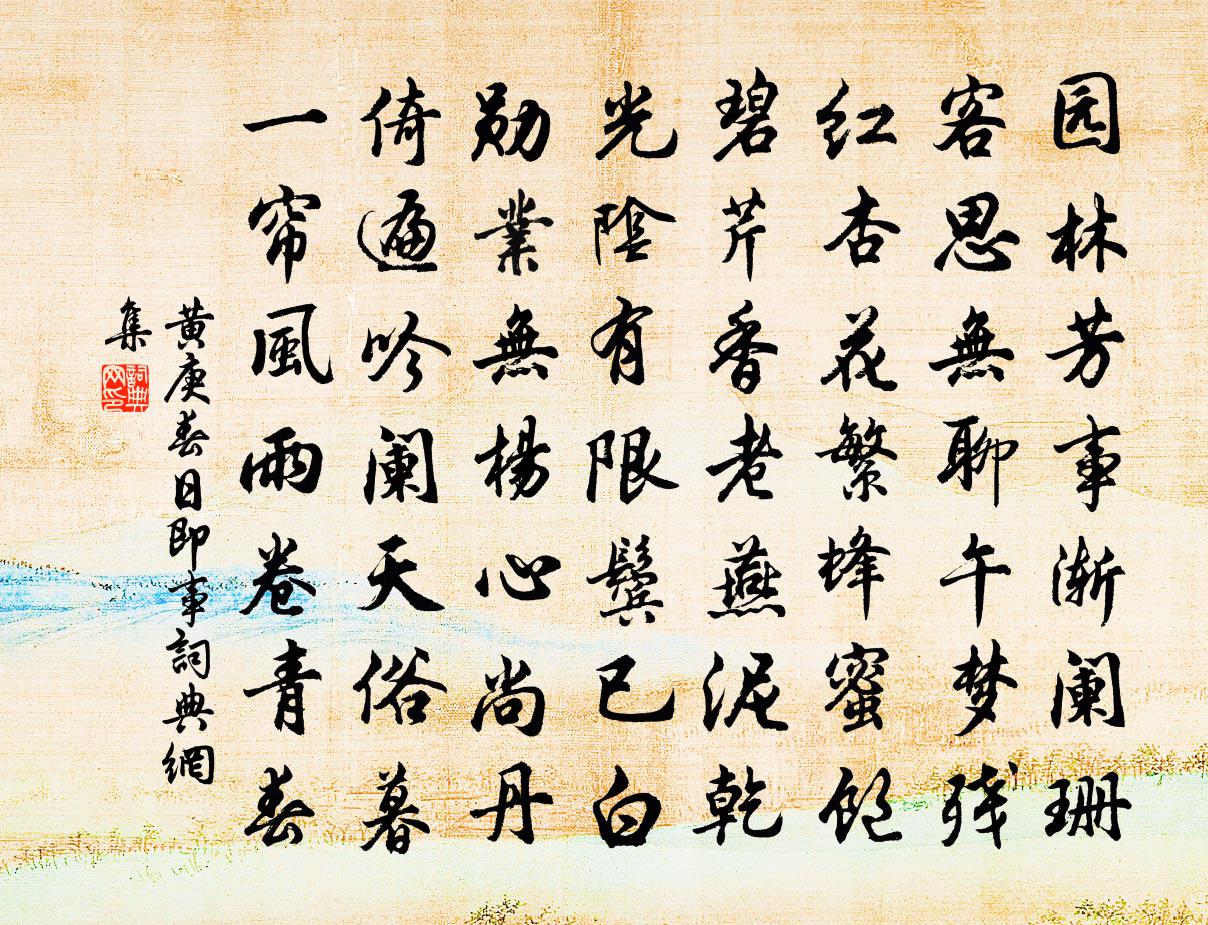 园林芳事渐阑珊
客思無聊午梦残
红杏花繁蜂蜜饱
碧芹香老燕泥乾
光陰有限鬓已白
勋業無楊心尚丹
倚遍吟阑天俗暮
一帘風雨卷青春
黄庚春日即事詞典網
集
詞典网印